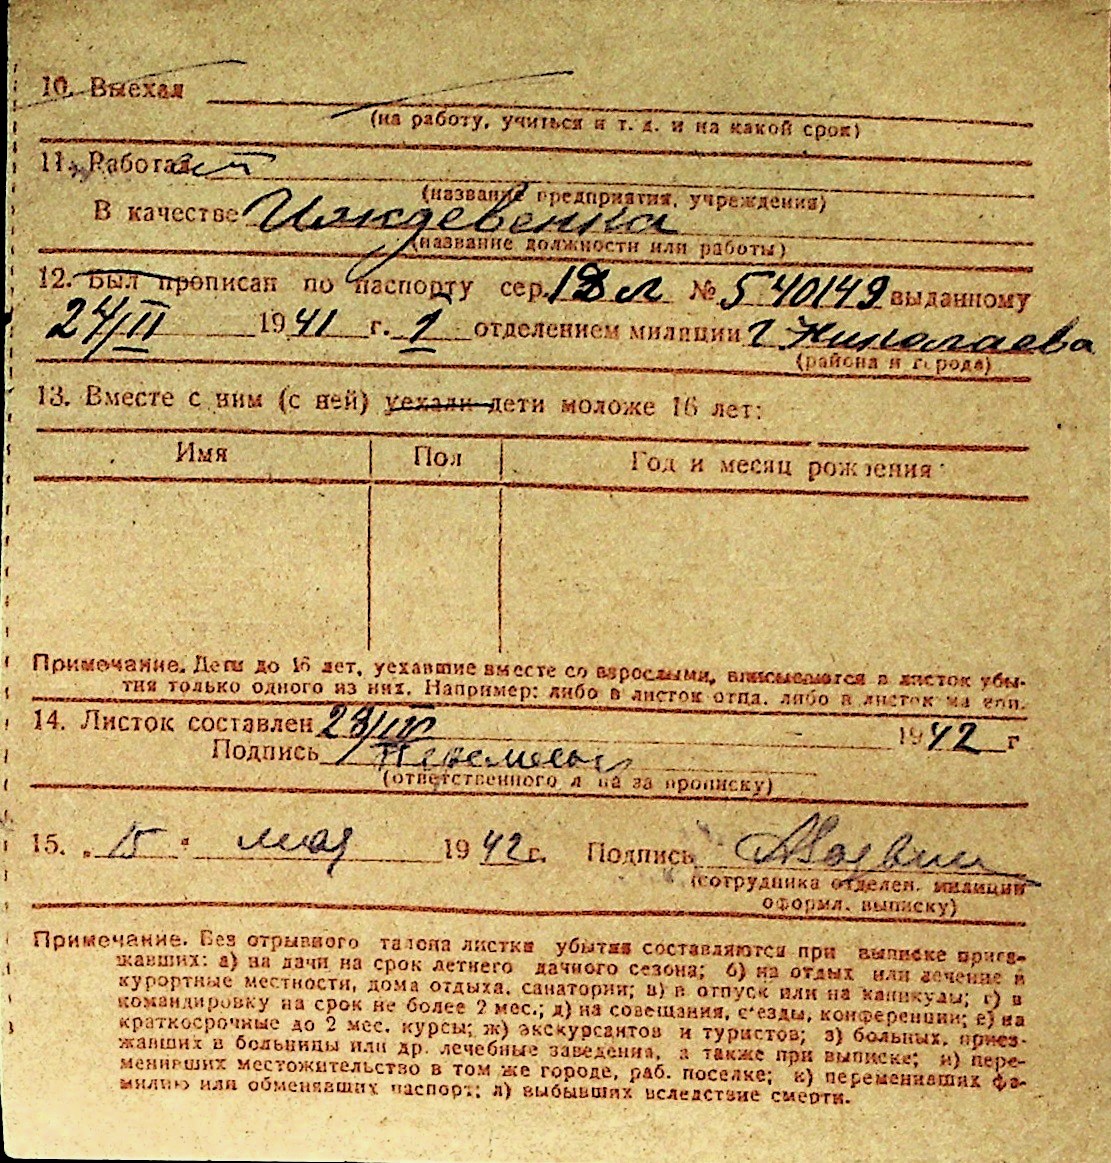 10. Выехал
(на работу, учиться и т. д. и на какой срок)
11. Работает
(название предприятия, учреждения)
В качестве Иждевенка
(название должности или работы)
12. Был прописан по паспорту сер. № 540149 выданному
24/II 1941 г. 1 отделением милиции г Николаева
(района и города)
13. Вместе с ним (с ней) уехали дети моложе 16 лет:
Имя Пол Год и месяц рождения
Примечание. Дети до 16 лет, уехавшие вместе со взрослыми, вписываются в листок убы-
тия только одного из них. Например: либо в листок отца, либо в листок матери.
14. Листок составлен 28/III 1942 г
Подпись
(ответственного л ца за прописку)
15. „ 15 " мая 1942 г. Подпись
(сотрудника отделен. милиции
оформл. выписку)
Примечание. Без отрывного талона листки убытия составляются при выписке приез-
жавших: а) на дачи на срок летнего дачного сезона; б) на отдых или лечение в
курортные местности, дома отдыха, санатории; в) в отпуск или на каникулы; г) в
командировку на срок не более 2 мес.; д) на совещания, с'езды, конференции; е) на
краткосрочные до 2 мес. курсы; ж) экскурсантов и туристов; з) больных, приез-
жавших в больницы или др. лечебные заведения, а также при выписке; и) пере-
менивших местожительство в том же городе, раб. поселке; к) переменивших фа-
милию или обменявших паспорт; л) выбывших вследствие смерти.